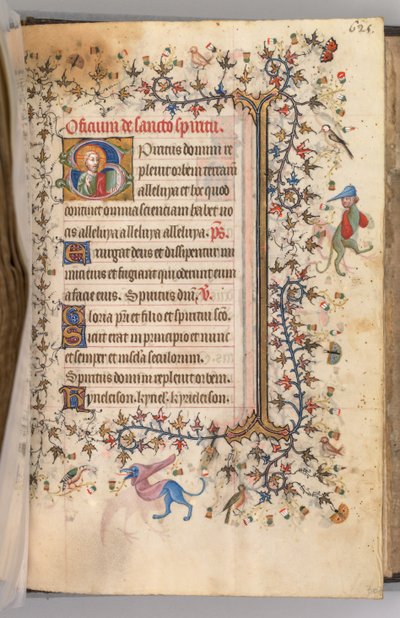 625.
Oficium de sancto spiritu.
Spiritus domini re
pleuit orbem terrarum
alleluya et hoc quod
continet omnia scienciam habet uo
cis alleluya alleluya alleluya. ps.
Exurgat deus et dissipentur ini
mici eius et fugiant qui oderunt eum
a facie eius. Spiritus dm̃. v.
Gloria pr̃i et filio et spiritui sc̃o.
Sicut erat in principio et nunc
et semper et in sc̃la seculorum.
Spiritus domini repleuit orbem.
Kyrieleison. kyriel. Kyrieleison.